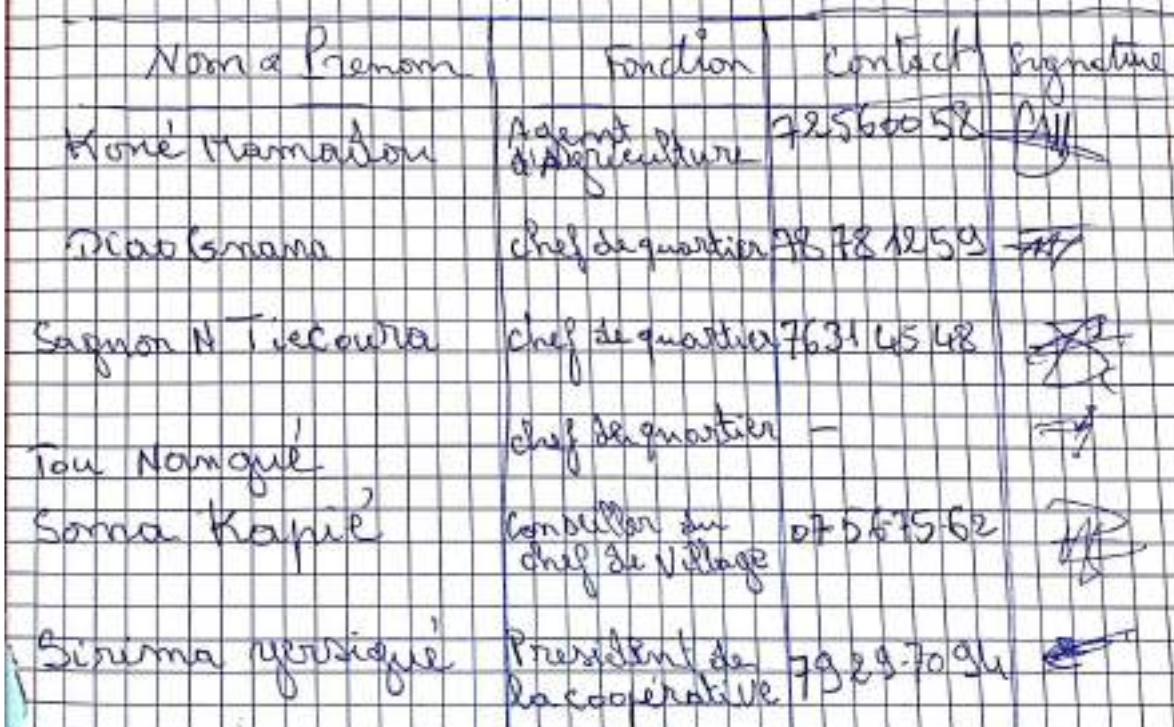 Nom & Prenom Fonction Contact Signature
Koné Mamadou Agent d'Agriculture 72560058
chef de quartier 78781259
Sagnon N Tiécoura chef de quartier 76314548
Tou Nangué chef de quartier -
Soma Kapié Conseiller du chef de Village 07567562
Sirima yersigué President de la coopérative 79297094